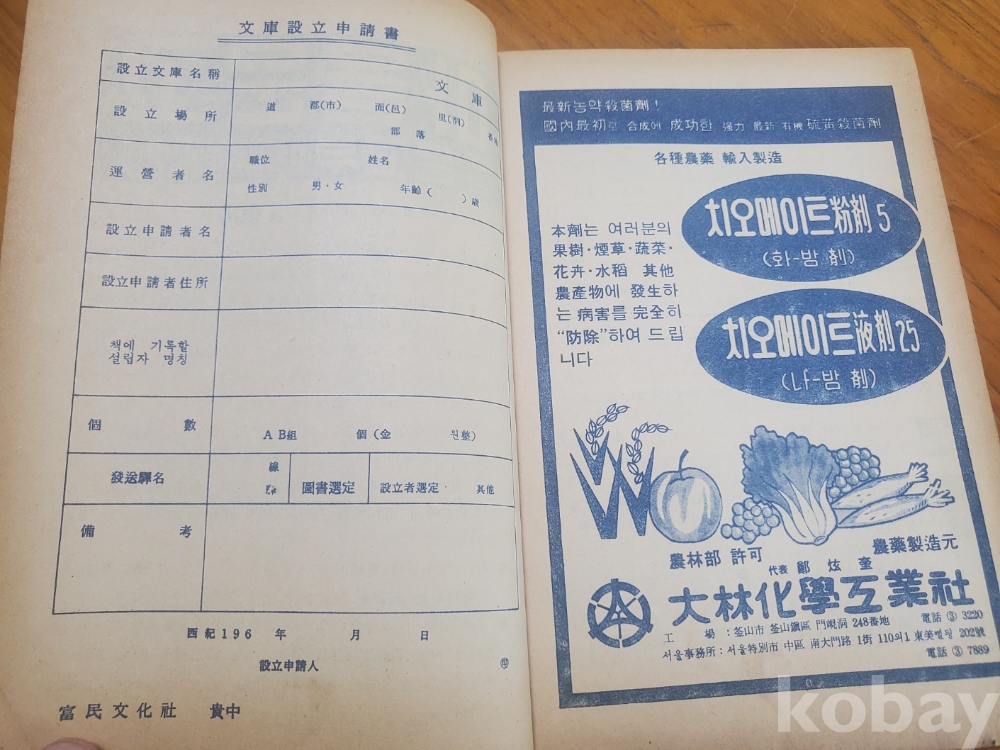 文庫設立申請書
設立文庫名稱 文庫
設立場所 道 郡(市) 面(邑) 里(洞) 番地
部落
運營者名 職位 姓名
性別 男·女 年齡( )歲
設立申請者名
設立申請者住所
책에 기록할
설립자 명칭
個數 AB組 個(金 원整)
發送驛名 線 圖書選定 設立者選定 其他
備考
西紀196 年 月 日
設立申請人 ㊞
富民文化社 貴中
最新농약殺菌劑!
國內最初로 合成에 成功한 强力 最新 有機 硫黃殺菌劑
各種農藥 輸入製造
치오메이트粉剤5
(화-밤 剤)
本劑는 여러분의
果樹·煙草·蔬菜·
花卉·水稻 其他
農產物에 發生하
는 病害를 完全히
“防除”하여 드립
니다
치오메이트液劑25
(나-밤 剤)
農林部 許可 農藥製造元
代表 鄭炫奎
大林化學工業社
工場:釜山市 釜山鎭區 門峴洞 248番地 電話 ③ 3220
서울事務所:서울特別市 中區 南大門路 1街 110의1 東美빌딩 202號
電話 ③ 7889
kobay